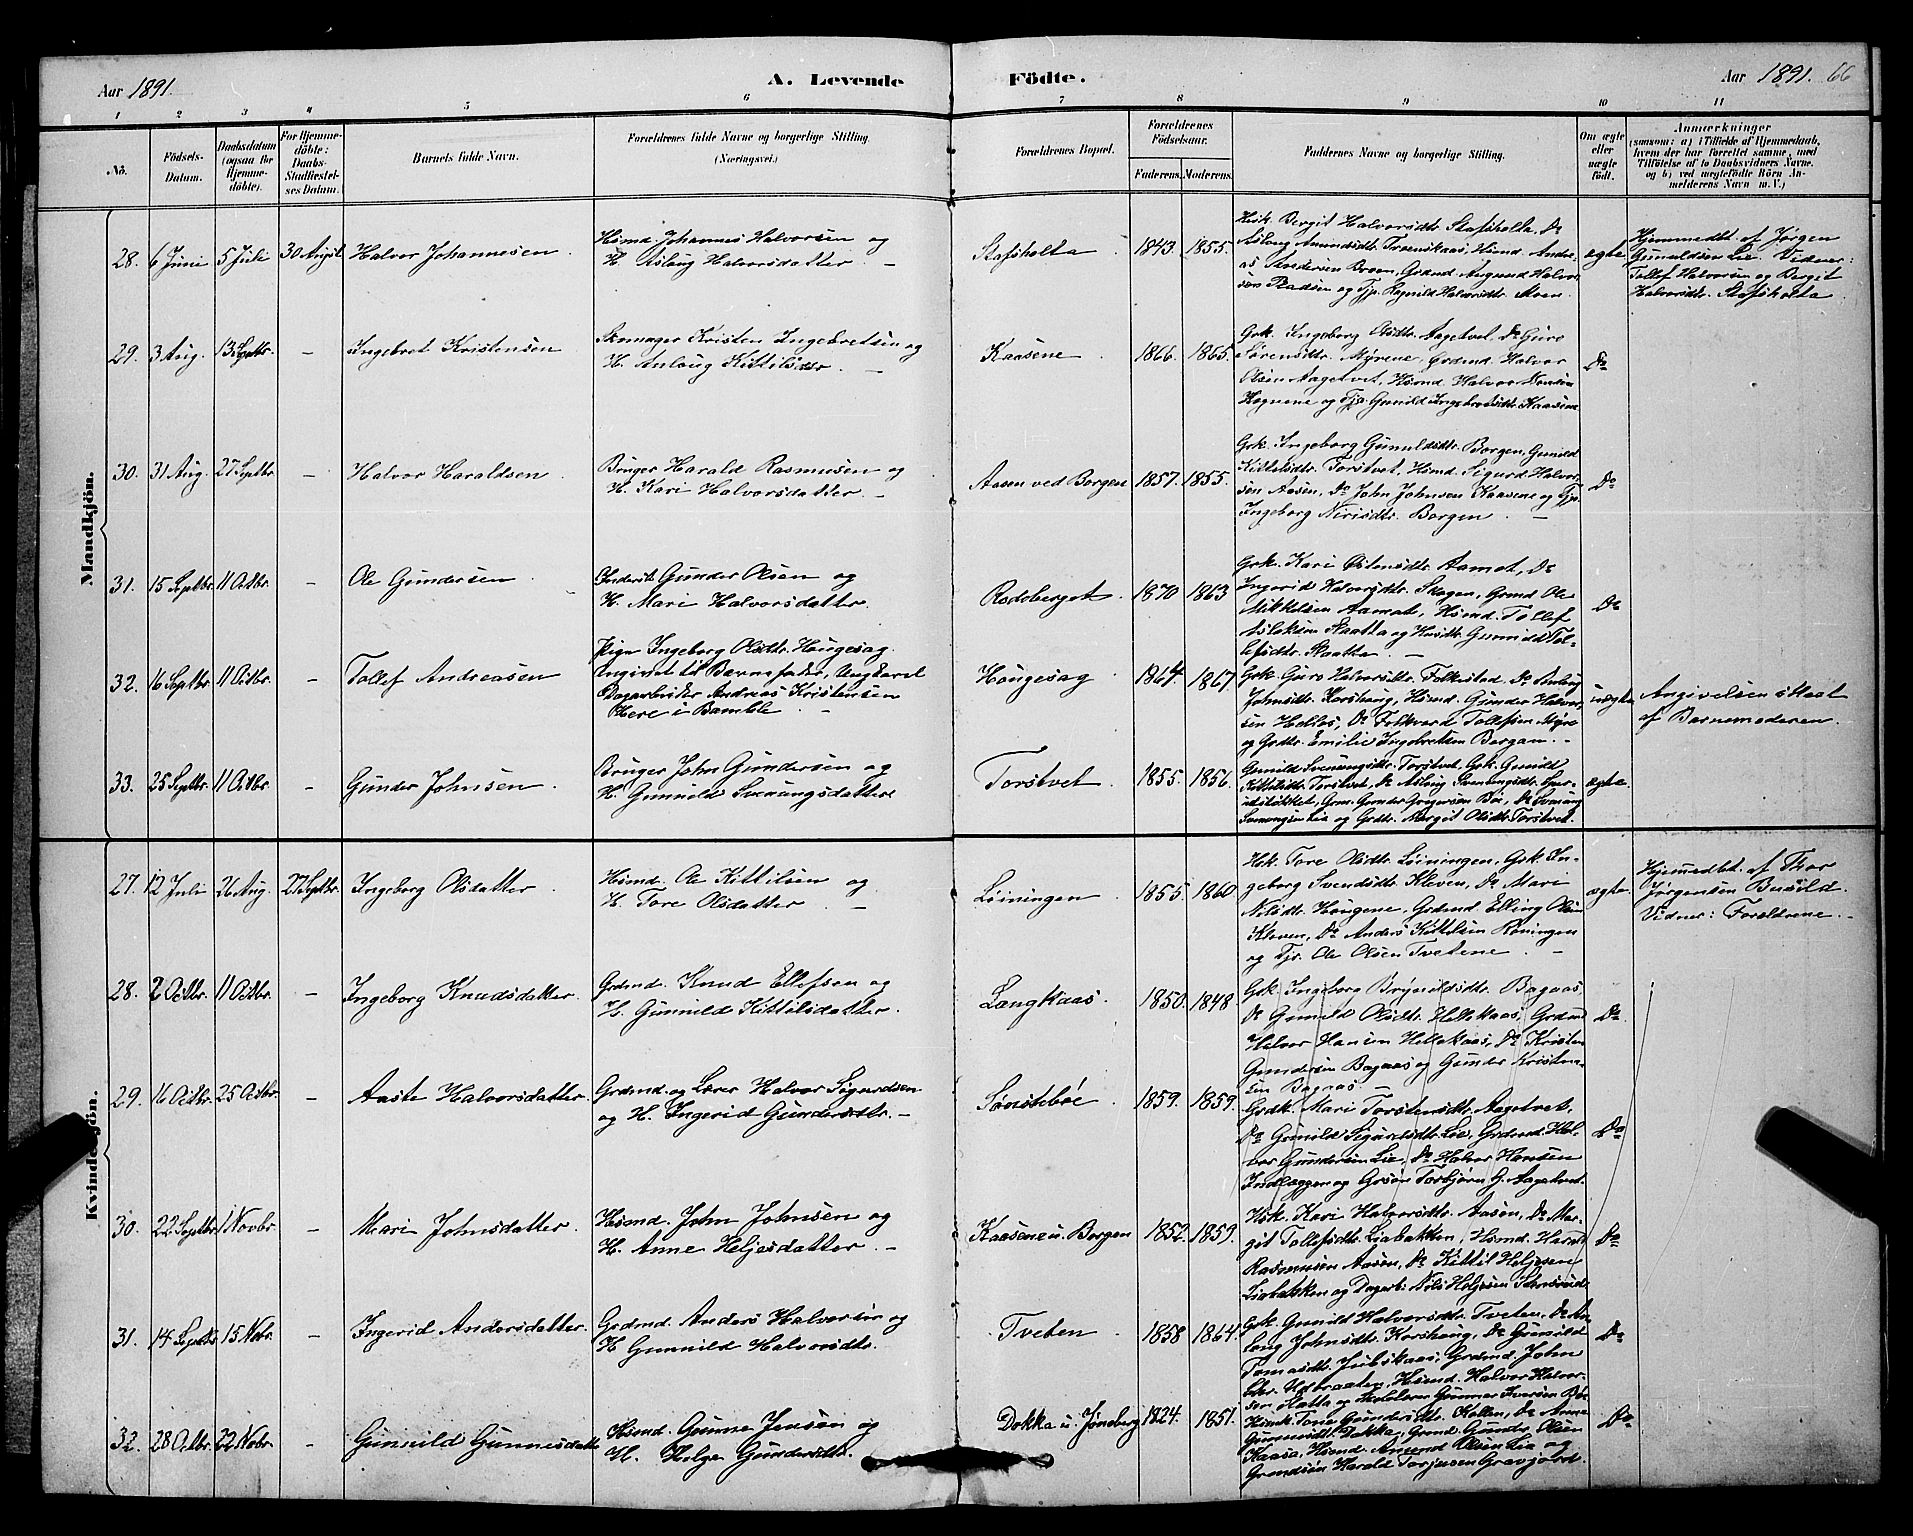 Aar 1891.
A. Levende Födte.
Aar 1891. 66
1 2 3 4 5 6 7 8 9 10 11
No.
Födsels-Datum.
Daabsdatum (ogsaa for Hjemme-döbte).
For Hjemme-döbte: Daabs-Stadfæstel-ses Datum.
Barnets fulde Navn.
Forældrenes fulde Navne og borgerlige Stilling. (Næringsvei.)
Forældrenes Bopæl.
Forældrenes Födselsaar.
Faderens. Moderens.
Faddernes Navne og borgerlige Stilling.
Om ægte eller uægte födt.
Anmærkninger
(saasom: a) i Tilfælde af Hjemmedaab, hvem der har forrettet samme, med Tilföielse af to Daabsvidners Navne. og b) ved uægtefödte Börn An-melderens Navn m. V.)
Mandkjön.
28. 6 Juni 5 Juli 30 August Halvor Johannesen.
Hsmd. Johannes Halvorsen og
H. Aslaug Halvorsdatter. —
Stafsholta 1843. 1855.
Hsk. Bergit Halvorsdtr. Stafsholta, Do
Aslaug Amundsdtr. Torenskaas, Hsmd. Andre-
as Andersen Broen, Grdmd. Aagund Halvor-
sen Pladsen og Tjp. Ragnild Halvorsdtr. Moen.
ægte
Hjemmedbt. af Jørgen
Gunuldsen Lie. Vidner:
Tollef Halvorsen og Bergit
Halvorsdtr. Stafsholta
29. 3 Aug. 13 Septbr. — Ingebret Kristensen
Skomager Kristen Ingebretsen og
H. Anlaug Kittilsdtr. —
Kaasene 1866. 1865.
Grk. Ingeborg Olsdtr. Aagetvet, Do Guro
Sørensdtr. Myrene, Grdmd. Halvor
Olsen Aagetvet, Hsmd. Halvor
Hagnene og Tjp. Gunild Ingebretsdtr. Kaasene
Do
30. 31 Aug. 27 Septbr. — Halvor Haraldsen
Bruger Harald Rasmusen og
H. Kari Halvorsdatter. —
Aasen ved Borgen 1857. 1855.
Grk. Ingeborg Gunuldsdtr. Borgen, Gunild
Kittelsdtr. Torstvet, Hsmd. Sigurd Halvor-
sen Aasen, Do John Johnsen Kaasene og Tjp.
Ingeborg Nirisdtr. Borgen. —
Do
31. 15 Septbr. 11 Octbr. — Ole Gundersen
Inderst Gunder Olsen og
H. Mari Halvorsdatter.
Rodoberget 1870 1863
Grk. Kari Østensdtr. Aamot, Do
Ingerid Halvorsdtr. Skogen, Grmd. Ole
Mikkelsen Aamot, Hsmd. Tollef
Aslaksen Skaatta og Husdtr. Gunnild Tol-
lefsdtr. Skaatta. —
Do
32. 16 Septbr. 11 Octbr. — Tollef Andreasen
Pige Ingeborg Olsdtr. Hougesag.
Angivet til Barnefader, Ungkarl
Dagarbeider Andreas Kristensen
Here i Bamble. —
Hougesag 1864. 1867.
Grk. Guro Halvorsdtr. Folkestad, Do Anlaug
Johnsdtr. Korshaug, Hsmd. Gunder Halvor-
sen Holtes, Do Folkvard Tollefsen Myre
og Grdtr. Emilie Ingebretsen Bergan. —
uægte
Angivelsen skeet
af Barnemoderen.
33. 25 Septbr. 11 Octbr. — Gunder Johnsen.
Bruger John Gundersen og
H. Gunnild Svenungsdatter
Torstvet 1855. 1856.
Gunild Svenungsdtr. Torstvet, Grk. Gunild
Kittilsdtr. Torstvet, Do Aslaug Svenungsdtr.
Grm. Gunder Gregersen Boe, Do Svenung
Svenungsen Lie og Grdtr. Bergit Olsdtr. Torstvet.
ægte.
Kvindekjön.
27. 12 Juli 26 Aug. 27 Septbr. Ingeborg Olsdatter.
Hsmd. Ole Kittilsen og
H. Tore Olsdatter. —
Løiningen 1855. 1860
Hsk. Tore Olsdtr. Løiningen, Grk. In-
geborg Svendsdtr. Kleven, Do Mari
Nilsdtr. Hougene, Grdmd Elling Olsen
Kleven, Do Anders Kittilsen Roningen
og Tjr. Ole Olsen Tvetene. —
ægte
Hjemmedbt. af Thor
Jørgensen Busild.
Vidner: Forældrene. —
28. 2 Octbr. 11 Octbr. — Ingeborg Knudsdatter.
Grdmd. Knud Ellefsen og
H. Gunnild Kittilsdatter.
Langkaas. 1850. 1848.
Grk. Ingeborg Brynildsdtr. Bagaas,
Do Gunild Olsdtr. Hellekaas, Grdmd
Halvor Hansen Hellekaas, Do Kristen
Gundersen Bagaas og Gunder Kristen-
sen Bagaas. —
Do
29. 16 Octbr. 25 Octbr. — Aaste Halvorsdatter.
Grdmd. og Lærer Halvor Sigurdsen
og H. Ingerid Gundersdtr. —
Sønstebøe 1859. 1859.
Grdk. Mari Torstensdtr. Aagetvet,
Do Gunild Sigurdsdtr. Lie, Grdmd. Hal-
vor Gundersen Lie, Do Halvor Hansen
Indlæggen og Grsøn Torbjørn G. Aagetvet.
Do
30. 22 Septbr. 1 Novbr. — Mari Johnsdatter.
Hsmd. John Johnsen og
H. Anne Heljesdatter. —
Kaasene u. Borgen 1852. 1859.
Hsk. Kari Halvorsdtr. Aasen, Do Mar-
git Tollefsdtr. Liabakken, Hsmd. Harald
Rasmusen Aasen, Do Kittil Heljesen
Liabakken og Dagarb. Nils Heljesen
Do
31. 14 Septbr. 15 Nobr. — Ingerid Andersdatter.
Grdmd. Anders Halvorsen og
H Gunnild Halvorsdtr.
Tveten 1858 1864.
Grk. Gunild Halvorsdtr. Tveten, Do An-
laug Johnsdtr. Korshaug, Do Gunnild
Tomasdtr. Jubskaas, Grdmd. John
Hsmd. Halvor Halvor-
sen og Gunnar Iversen
Do
32. 28 Octbr. 22 Nobr. — Gunnild Gunnesdatter
Hsmd. Gunne Jensen og
H. Helge Gundersdtr.
Dokka u. Jønsberg 1824. 1851.
Hsmk. Tone Gundersdtr. Kollen, Do Anne
Gunnesdtr. Dokka, Grmd. Gunder Olsen
Kaasa, Hsmd. Amund Olsen Lie og
Grmdsøn Harald Torjusen Gravjord.
Do